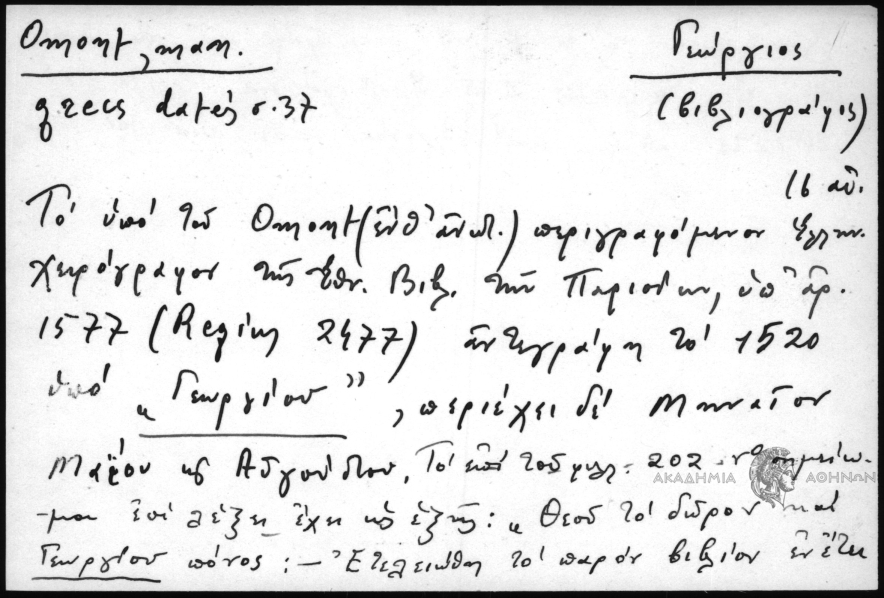 Omont, man. Γεώργιος
grecs datés σ. 37 (βιβλιογράφος)
16 αἰ.
Τό ὑπό τοῦ Omont (ἔνθ' ἀνωτ.) περιγραφόμενον ἑλλην.
χειρόγραφον τῆς Ἐθν. Βιβλ. τῶν Παρισίων, ὑπ' ἀρ.
1577 (Regius 2477) ἀντεγράφη τό 1520
ὑπό „Γεωργίου”, περιέχει δέ Μηναῖον
Μαΐου καὶ Αὐγούστου. Τό ἐπί τοῦ φυλλ. 202 νο σημείω-
ΑΚΑΔΗΜΙΑ ΑΘΗΝΩΝ
-μα ἐπί λέξει ἔχει ὡς ἑξῆς: „Θεοῦ τό δῶρον καί
Γεωργίου πόνος: – Ἐτελειώθη τό παρόν βιβλίον ἐν ἔτει